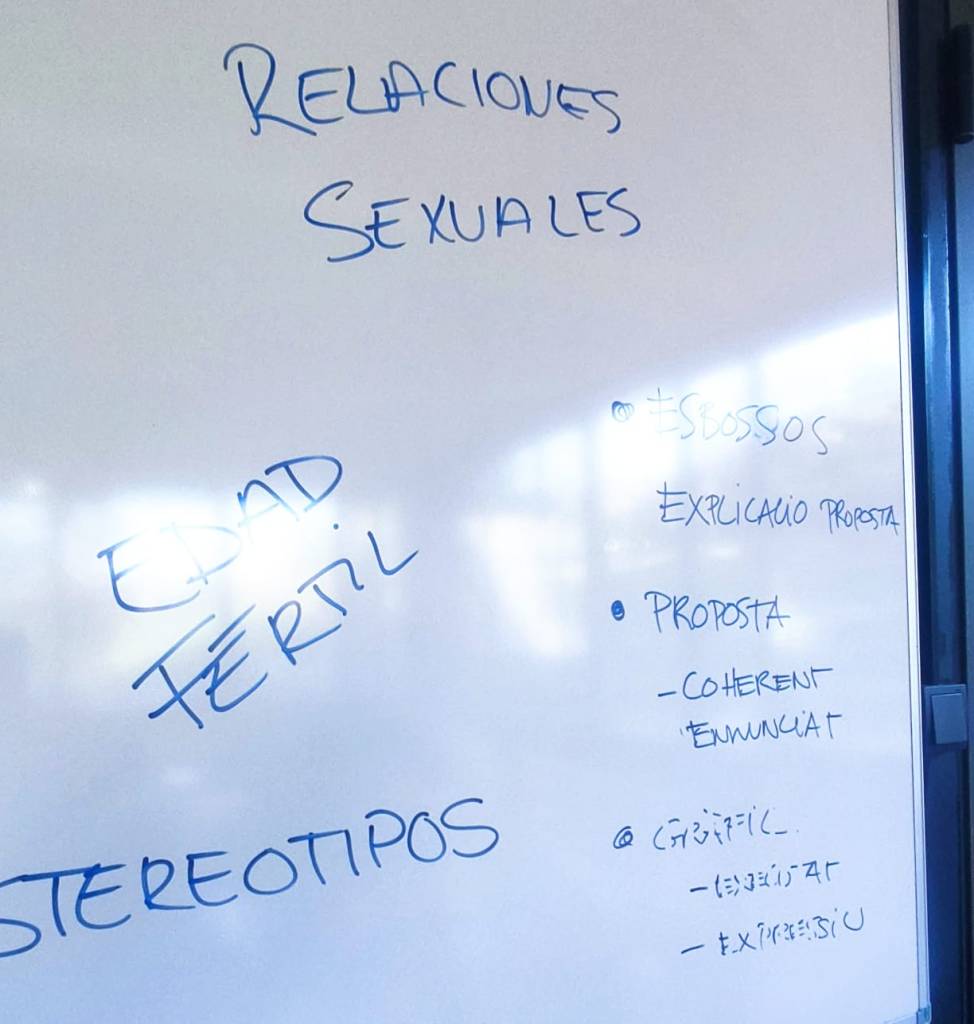 RELACIONES
SEXUALES
EDAD
FÉRTIL
STEREOTIPOS
• ESBOSSOS
EXPLICACIO PROPOSTA
• PROPOSTA
- COHERENT
ENNUNCIAT
-
- EXPRESSIU